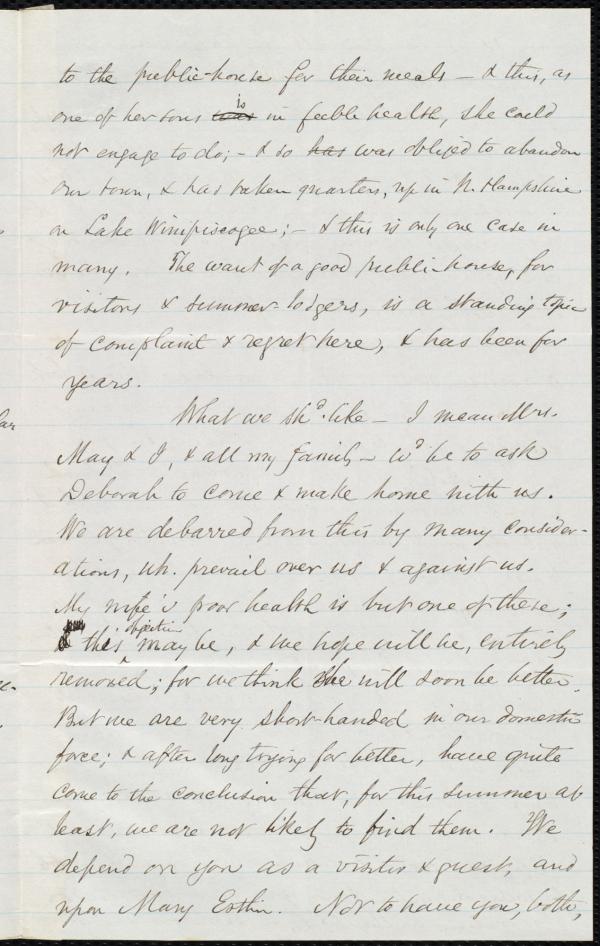 to the public-house for their meals — & this, as
one of her sons was is in feeble health, she could
not engage to do; — & so has was obliged to abandon
our town, & has taken quarters, up in N. Hampshire
on Lake Winipiscogee; — & this is only one case in
many. The want of a good public-house, for
visitors & summer-lodgers, is a standing topic
of complaint & regret here, & has been for
years.
What we shd. like — I mean Mrs.
May & I, & all my family — wd be to ask
Deborah to come & make home with us.
We are debarred from this by many consider-
ations, wh. prevail over us & against us.
My wife's poor health is but one of these;
& this objection may be, & we hope will be, entirely
removed; for we think she will soon be better.
But we are very short-handed in our domestic
force; & after long trying for better, have quite
come to the conclusion that, for this summer at
least, we are not likely to find them. We
depend on you as a visitor & guest, and
upon Mary Esther. Not to have you, both,